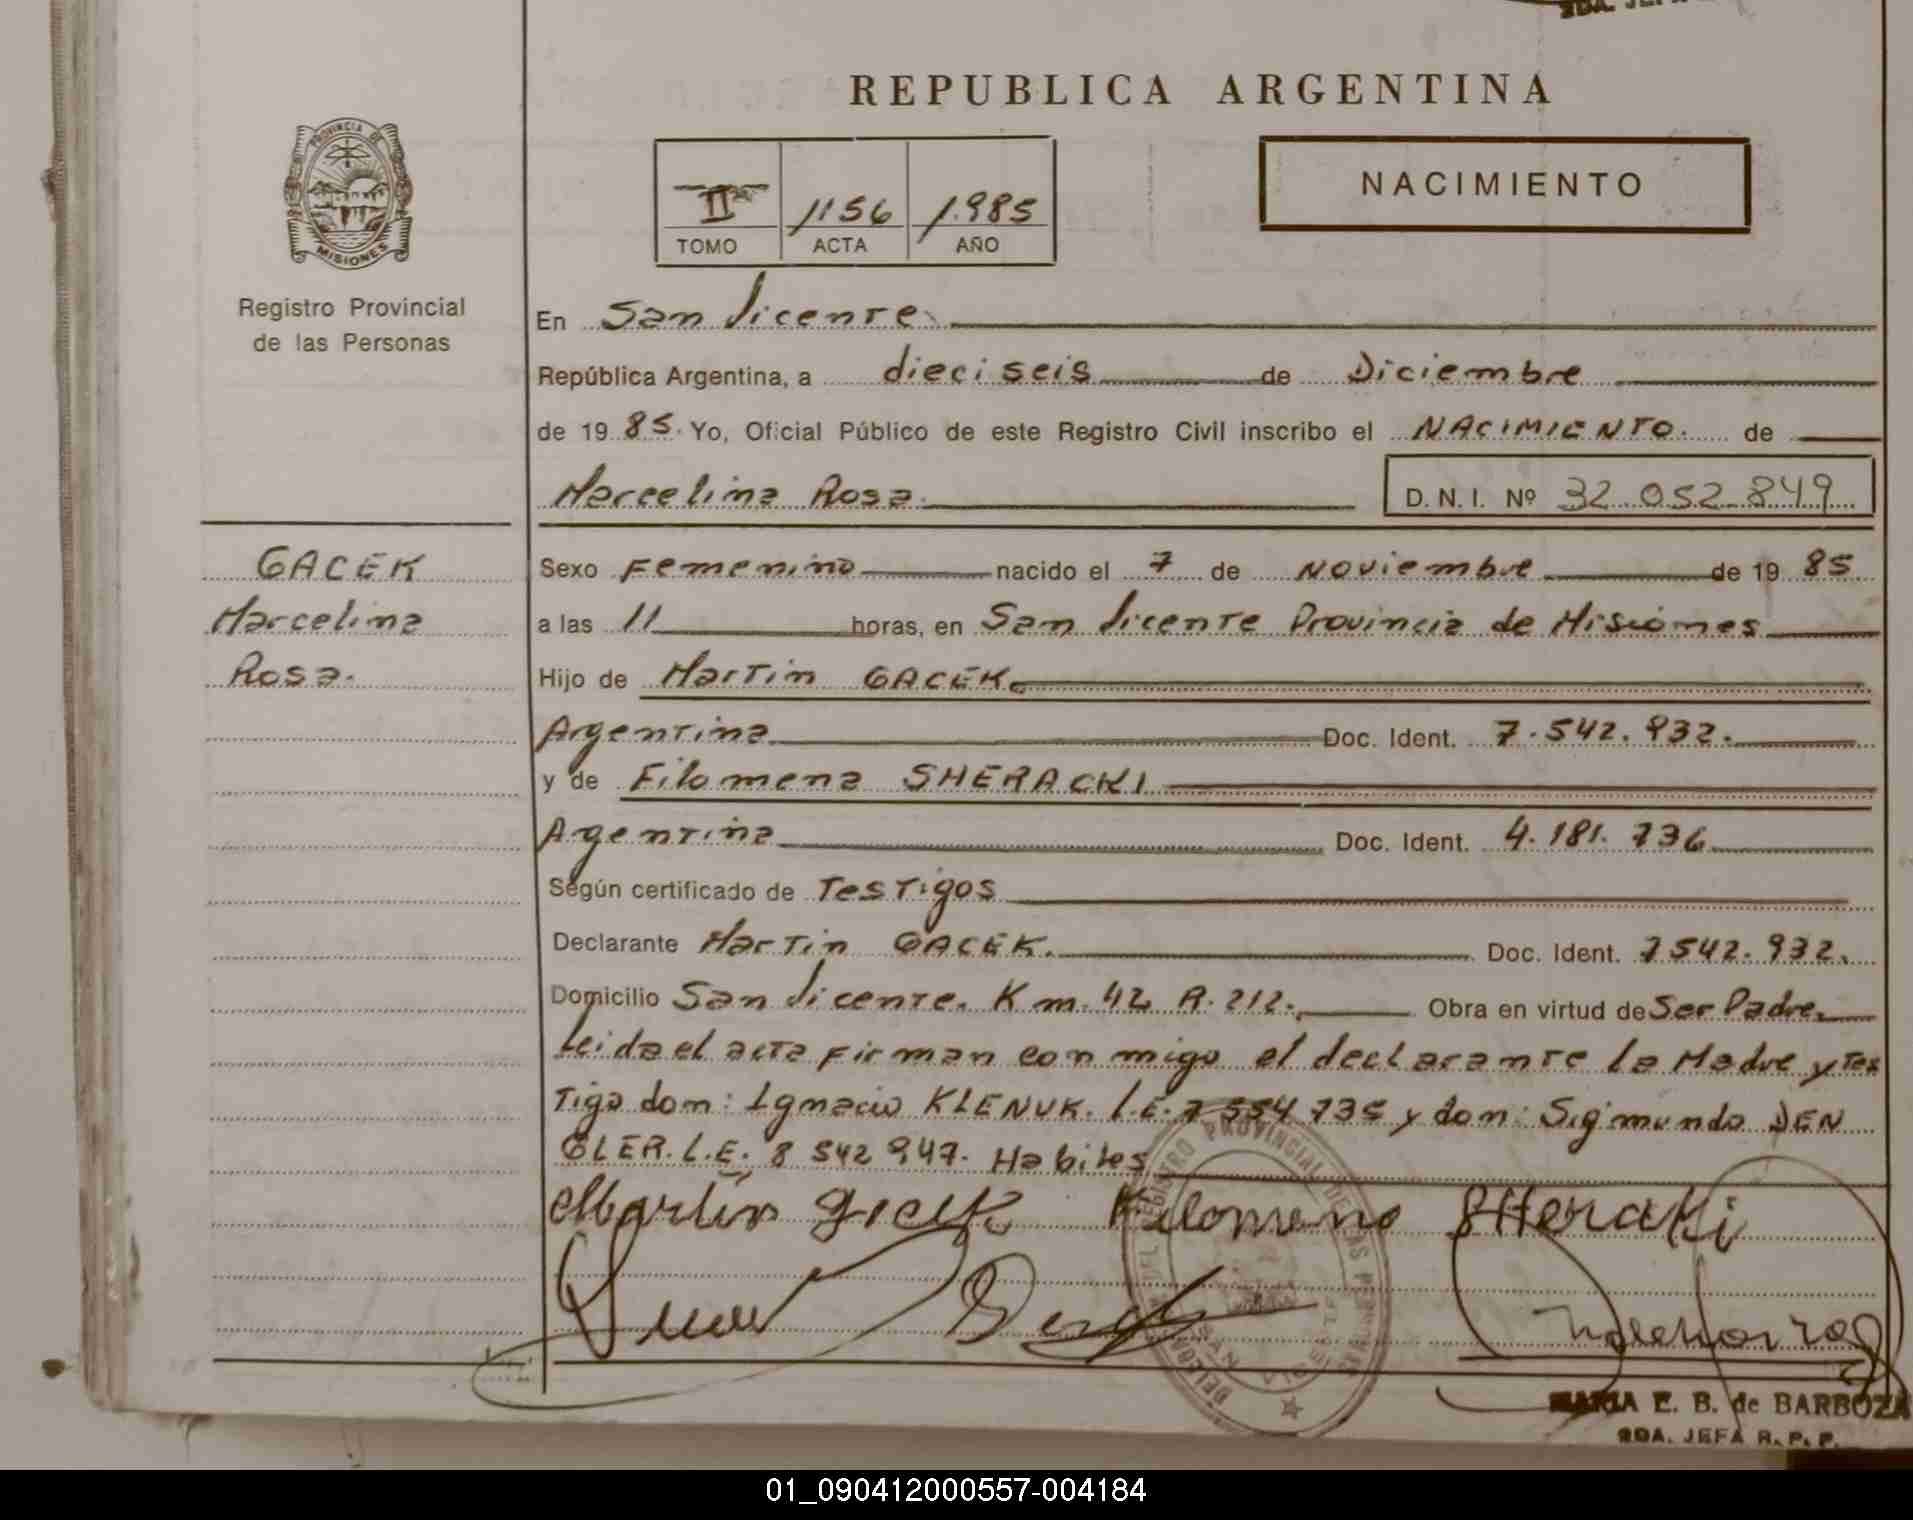 SDA. JEFA
REPUBLICA ARGENTINA
PROVINCIA DE
MISIONES
Registro Provincial
de las Personas
II 1156 1.985
TOMO ACTA AÑO
NACIMIENTO
En San Vicente
República Argentina, a dieciseis de Diciembre
de 19 85. Yo, Oficial Público de este Registro Civil inscribo el NACIMIENTO. de
Marcelina Rosa. D. N. I. Nº 32.052.849
GACEK
Marcelina
Rosa.
Sexo Femenino nacido el 7 de Noviembre de 19 85
a las 11 horas, en San Vicente Provincia de Misiones
Hijo de Martin GACEK.
Argentina Doc. Ident. 7.542.932.
y de Filomena SHERACKI
Argentina Doc. Ident. 4.181.736
Según certificado de Testigos
Declarante Martin GACEK. Doc. Ident. 7542.932.
Domicilio San Vicente. Km. 42 R. 212. Obra en virtud de Ser Padre.
Leida el acta firman conmigo el declarante la Madre y Tes
Tigo don: Ignacio KLENUK. L.E. 7 554 735 y don: Sigmundo DEN
GLER. L.E. 8 542 947. Habiles
Martin Gacek Filomena SHeraKi
MARIA E. B. de BARBOZA
SDA. JEFA R. P. P.
01_090412000557-004184